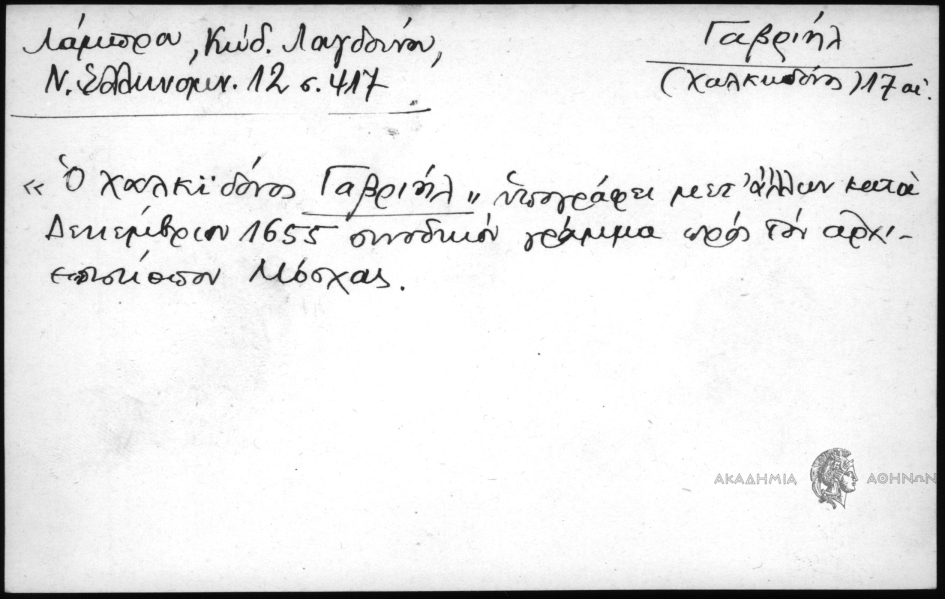 Λάμπρου, Κώδ. Λονδίνου,
Ν. Ἑλληνομν. 12 σ. 417
Γαβριήλ
(Χαλκηδόνος) 17 αἰ.
«Ὁ Χαλκϊδόνος Γαβριήλ» ὑπογράφει μετ' ἄλλων κατὰ
Δεκέμβριον 1655 συνοδικὸν γράμμα πρὸς τὸν ἀρχι-
επίσκοπον Μόσχας.
ΑΚΑΔΗΜΙΑ ΑΘΗΝΩΝ